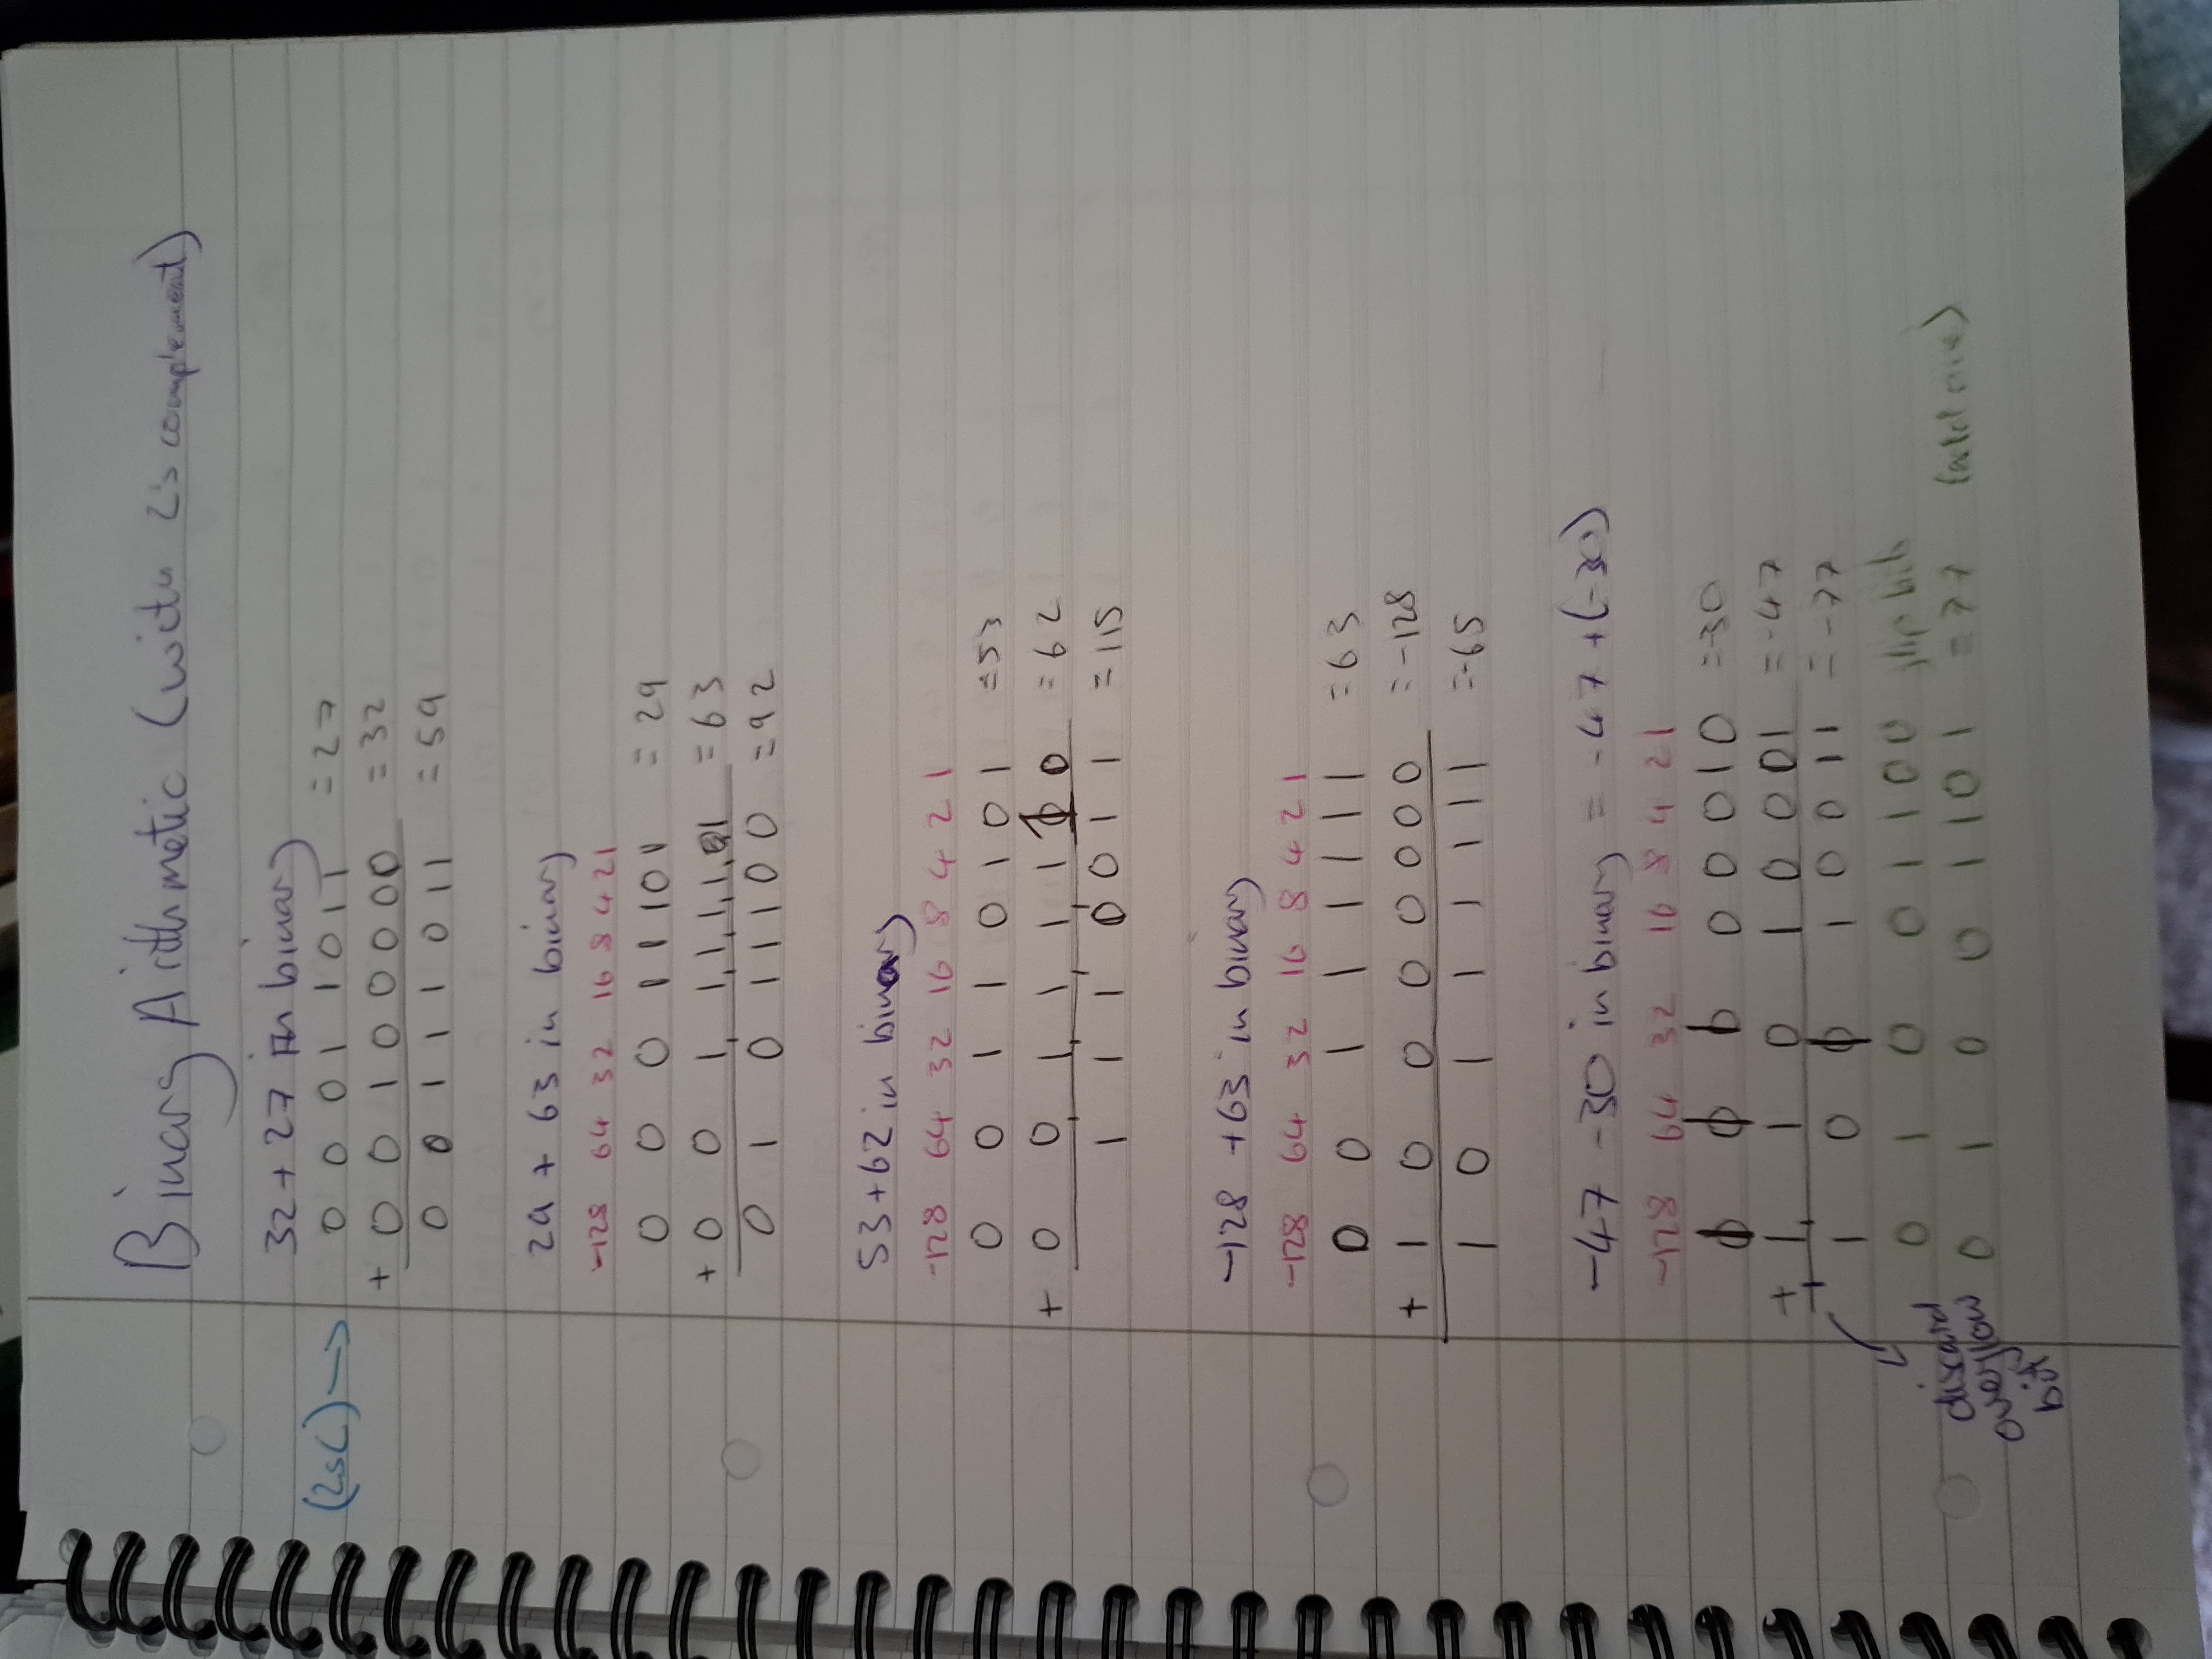 Binary Arithmetic (with 2's complement)
32 + 27 in binary
(2SC) → 0 0 0 1 1 0 1 1 = 27
+ 0 0 1 0 0 0 0 0 = 32
0 0 1 1 1 0 1 1 = 59
29 + 63 in binary
-128 64 32 16 8 4 2 1
0 0 0 1 1 1 0 1 = 29
+ 0 0 1 1 1 1 1 1 = 63
0 1 0 1 1 1 0 0 = 92
53 + 62 in binary
-128 64 32 16 8 4 2 1
0 0 1 1 0 1 0 1 = 53
+ 0 0 1 1 1 1 1 0 = 62
1 1 1 0 0 1 1 = 115
-128 + 63 in binary
-128 64 32 16 8 4 2 1
0 0 1 1 1 1 1 1 = 63
+ 1 0 0 0 0 0 0 0 = -128
1 0 1 1 1 1 1 1 = -65
-47 - 30 in binary = -47 + (-30)
-128 64 32 16 8 4 2 1
1 1 1 0 0 0 1 0 = -30
+ 1 1 0 1 0 0 0 1 = -47
1 0 1 1 0 0 1 1 = -77
discard
overflow
bit
0 1 0 0 1 1 0 0 flip bits
0 1 0 0 1 1 0 1 = 77 (add one)